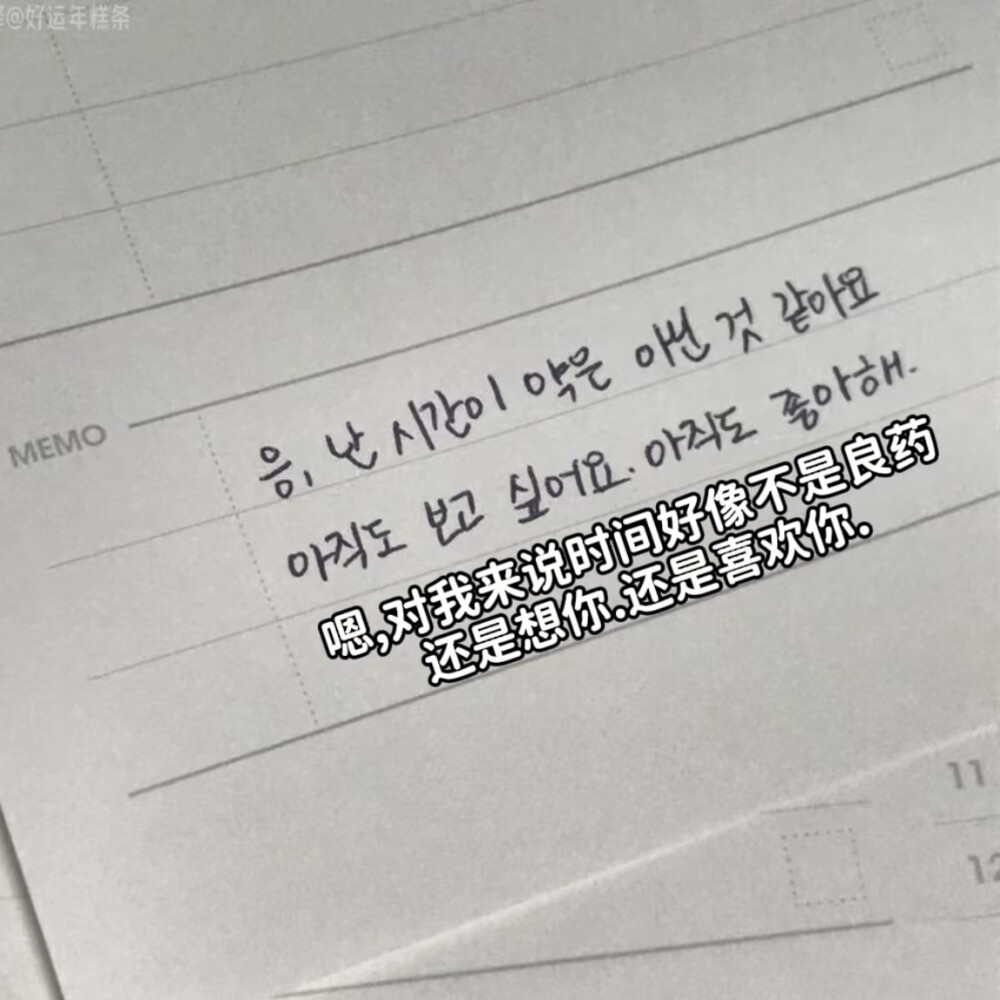 @好运年糕条
MEMO
응, 난 시간이 약은 아닌 것 같아요
아직도 보고 싶어요. 아직도 좋아해.
嗯,对我来说时间好像不是良药
还是想你.还是喜欢你.
11
12